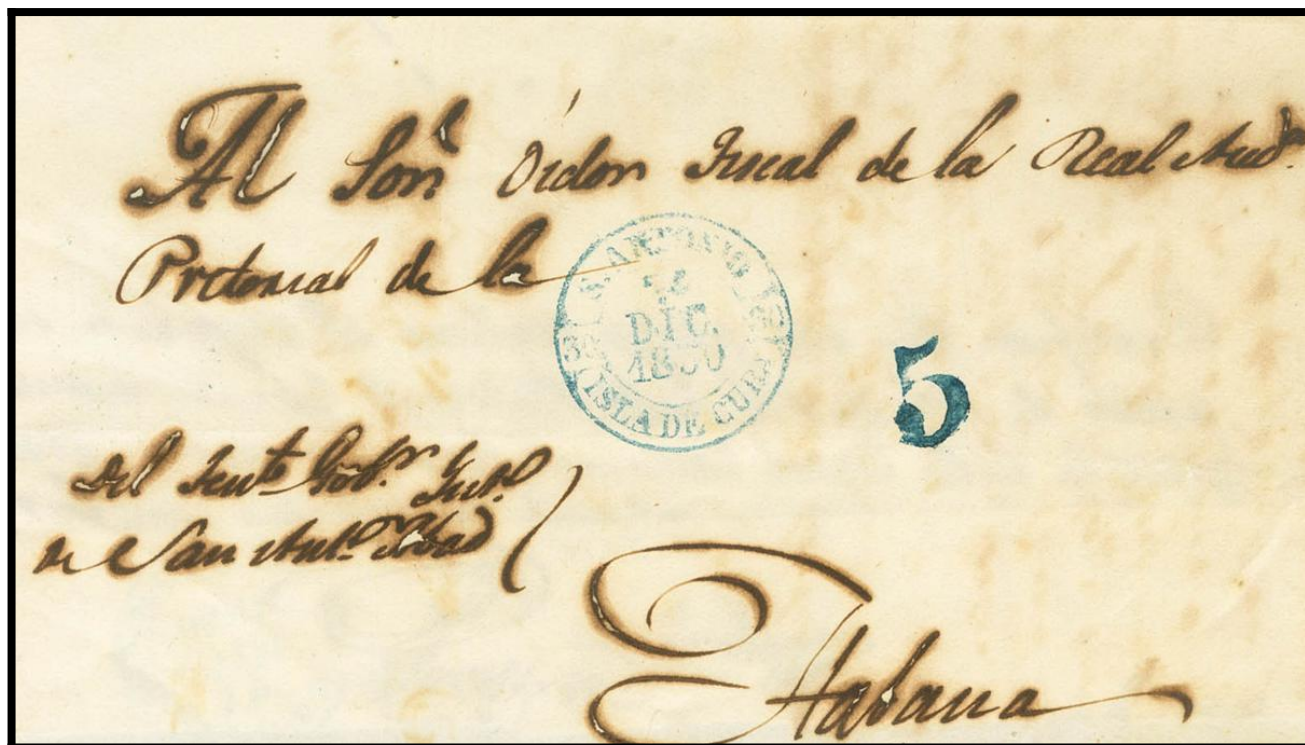 Al Sor. Oidor Fiscal de la Real Auda.
Pretorial de la
S. ANTONIO
DIC.
1850
ISLA DE CUBA
5
Del Tente. Gobor.
de San Anto.
Habana